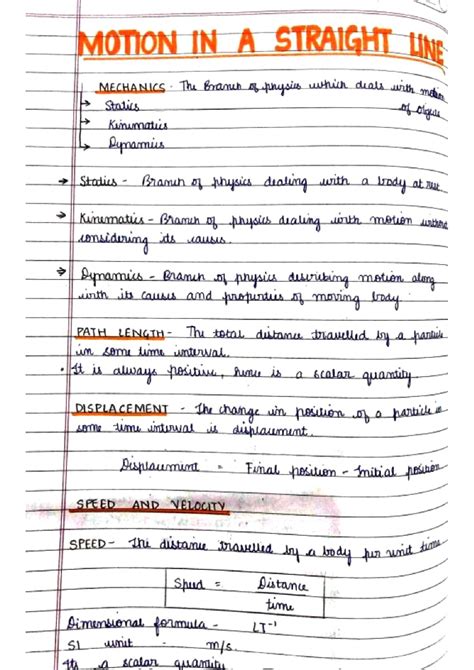 MOTION IN A STRAIGHT LINE
MECHANICS - The Branch of physics which deals with motion
of Objects
→ Statics
→ Kinematics
→ Dynamics
→ Statics - Branch of physics dealing with a body at rest.
→ Kinematics - Branch of physics dealing with motion without
considering its causes.
→ Dynamics - Branch of physics describing motion along
with its causes and properties of moving body.
PATH LENGTH - The total distance travelled by a particle
in some time interval.
• It is always positive, hence is a scalar quantity.
DISPLACEMENT - The change in position of a particle in
some time interval is displacement.
Displacement = Final position - Initial position
SPEED AND VELOCITY
SPEED - The distance travelled by a body per unit time
Speed = Distance
time
Dimensional formula - LT⁻¹
SI unit - m/s.
Its a scalar quantity